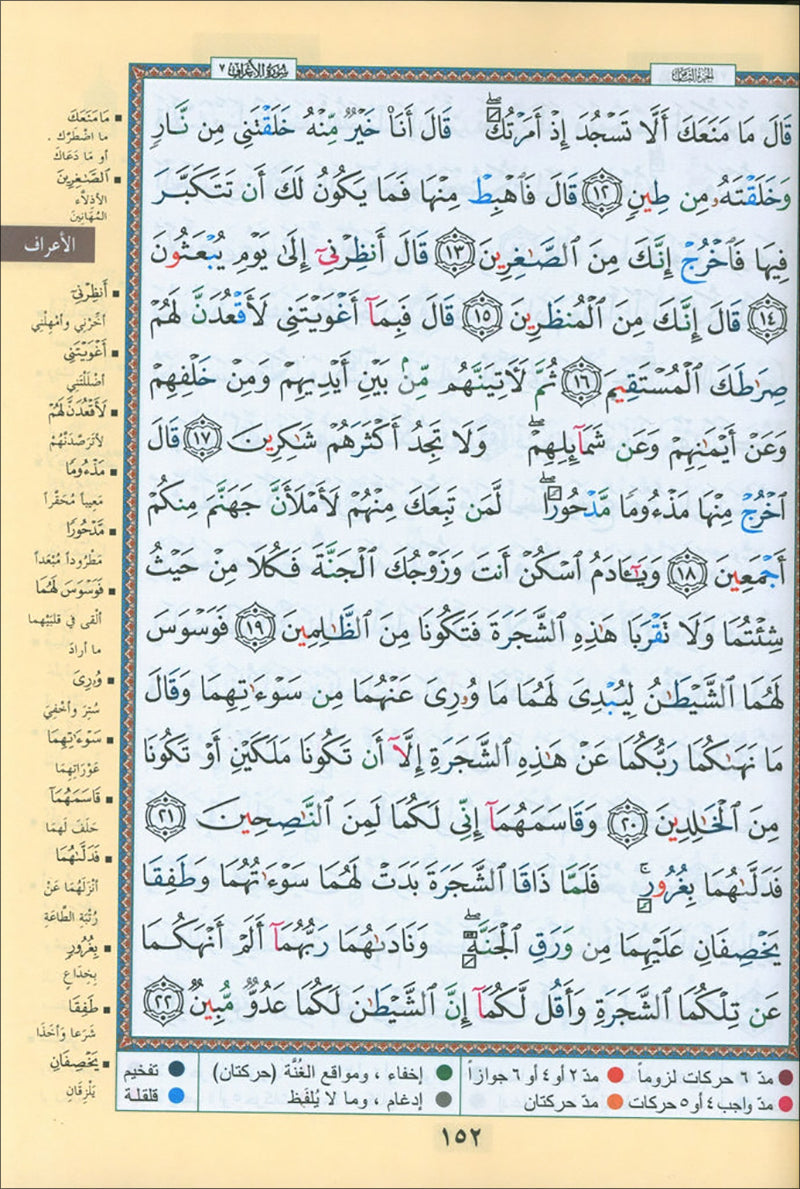 سُورَةُ الأَعْرَاف ٧
الجزء الثامن
قَالَ مَا مَنَعَكَ أَلَّا تَسْجُدَ إِذْ أَمَرْتُكَ ۖ قَالَ أَنَا۠ خَيْرٌ مِّنْهُ خَلَقْتَنِى مِن نَّارٍ
وَخَلَقْتَهُۥ مِن طِينٍ ١٢ قَالَ فَٱهْبِطْ مِنْهَا فَمَا يَكُونُ لَكَ أَن تَتَكَبَّرَ
فِيهَا فَٱخْرُجْ إِنَّكَ مِنَ ٱلصَّـٰغِرِينَ ١٣ قَالَ أَنظِرْنِىٓ إِلَىٰ يَوْمِ يُبْعَثُونَ
١٤ قَالَ إِنَّكَ مِنَ ٱلْمُنظَرِينَ ١٥ قَالَ فَبِمَآ أَغْوَيْتَنِى لَأَقْعُدَنَّ لَهُمْ
صِرَٰطَكَ ٱلْمُسْتَقِيمَ ١٦ ثُمَّ لَـَٔاتِيَنَّهُم مِّنۢ بَيْنِ أَيْدِيهِمْ وَمِنْ خَلْفِهِمْ
وَعَنْ أَيْمَـٰنِهِمْ وَعَن شَمَآئِلِهِمْ ۖ وَلَا تَجِدُ أَكْثَرَهُمْ شَـٰكِرِينَ ١٧ قَالَ
ٱخْرُجْ مِنْهَا مَذْءُومًا مَّدْحُورًا ۖ لَّمَن تَبِعَكَ مِنْهُمْ لَأَمْلَأَنَّ جَهَنَّمَ مِنكُمْ
أَجْمَعِينَ ١٨ وَيَـٰٓـَٔادَمُ ٱسْكُنْ أَنتَ وَزَوْجُكَ ٱلْجَنَّةَ فَكُلَا مِنْ حَيْثُ
شِئْتُمَا وَلَا تَقْرَبَا هَـٰذِهِ ٱلشَّجَرَةَ فَتَكُونَا مِنَ ٱلظَّـٰلِمِينَ ١٩ فَوَسْوَسَ
لَهُمَا ٱلشَّيْطَـٰنُ لِيُبْدِىَ لَهُمَا مَا وُۥرِىَ عَنْهُمَا مِن سَوْءَٰتِهِمَا وَقَالَ
مَا نَهَىٰكُمَا رَبُّكُمَا عَنْ هَـٰذِهِ ٱلشَّجَرَةِ إِلَّآ أَن تَكُونَا مَلَكَيْنِ أَوْ تَكُونَا
مِنَ ٱلْخَـٰلِدِينَ ٢٠ وَقَاسَمَهُمَآ إِنِّى لَكُمَا لَمِنَ ٱلنَّـٰصِحِينَ ٢١
فَدَلَّىٰهُمَا بِغُرُورٍ ۚ فَلَمَّا ذَاقَا ٱلشَّجَرَةَ بَدَتْ لَهُمَا سَوْءَٰتُهُمَا وَطَفِقَا
يَخْصِفَانِ عَلَيْهِمَا مِن وَرَقِ ٱلْجَنَّةِ ۖ وَنَادَىٰهُمَا رَبُّهُمَآ أَلَمْ أَنْهَكُمَا
عَن تِلْكُمَا ٱلشَّجَرَةِ وَأَقُل لَّكُمَآ إِنَّ ٱلشَّيْطَـٰنَ لَكُمَا عَدُوٌّ مُّبِينٌ ٢٢
مَا مَنَعَكَ
ما اضْطَرَّك .
أو مَا دَعَاكَ
ٱلصَّـٰغِرِينَ
الأذِلَّاءِ
المُهَانِينَ
الأعراف
أَنظِرْنِىٓ
أخّرْني وأمْهِلْني
أَغْوَيْتَنِى
أضْلَلْتَني
لَأَقْعُدَنَّ لَهُمْ
لأترَصَّدَنَّهُمْ
مَذْءُومًا
مَعِيباً مُحَقَّراً
مَّدْحُورًا
مَطْرُوداً مُبْعَداً
فَوَسْوَسَ لَهُمَا
ألْقى في قلبَيْهِما
ما أرادَ
وُۥرِىَ
سُتِرَ وأخْفِيَ
سَوْءَٰتِهِمَا
عَوْرَاتِهِمَا
قَاسَمَهُمَآ
حَلَفَ لَهما
فَدَلَّىٰهُمَا
أنْزَلَهُمَا عَنْ
رُتْبَةِ الطّاعَةِ
بِغُرُورٍ
بِخِدَاعٍ
طَفِقَا
شَرَعا وَأخَذَا
يَخْصِفَانِ
يَلْزِقَانِ
مدّ ٦ حركات لزوماً
مدّ ٢ أو ٤ أو ٦ جوازاً
إخفاء ، ومواقع الغُنَّة (حركتان)
تفخيم
مدّ واجب ٤ أو ٥ حركات
مدّ حركتان
إدغام ، وما لا يُلفَظ
قلقلة
١٥٢